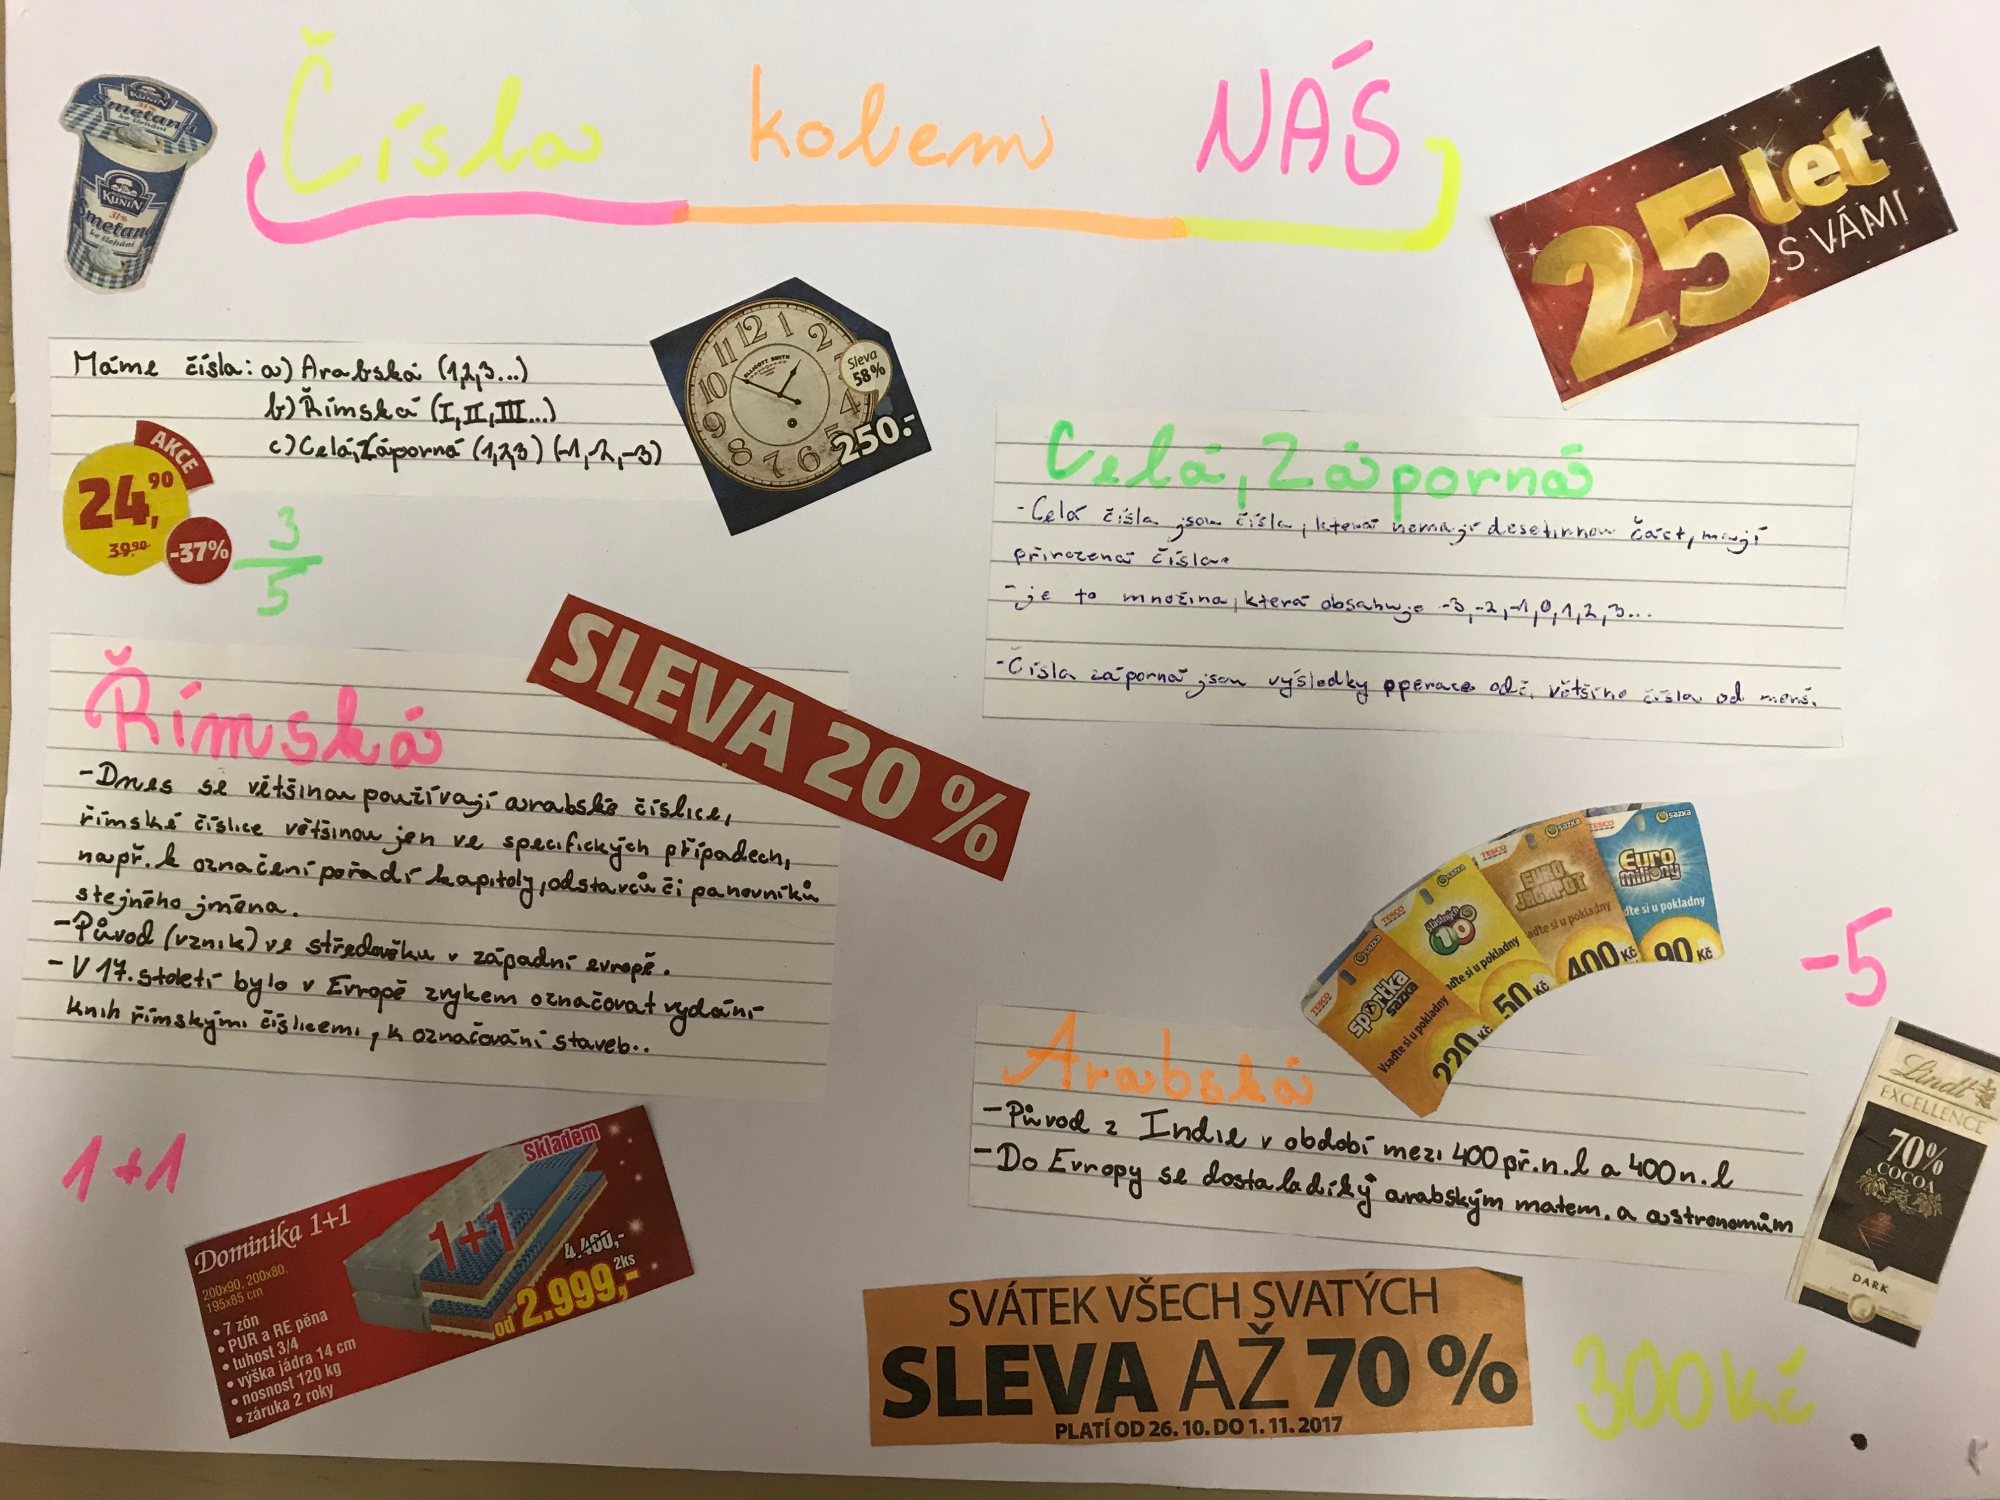 Čísla kolem NÁS
KUNÍN
31%
Smetana
ke šlehání
KUNÍN
31%
Smetana
ke šlehání
25 let
S VÁMI
Máme čísla: a) Arabská (1,2,3...)
b) Římská (I, II, III...)
c) Celá, Záporná (1,2,3) (-1, -2, -3)
12 1 2 4 5 6 7 8 9 10 11
ELLIOTT SMITH
Sleva
58%
250.-
AKCE
24,90
39.90
-37%
3
5
Celá, Záporná
- Celá čísla jsou čísla, která nemají desetinnou část, mají
přirozená čísla.
- je to množina, která obsahuje -3, -2, -1, 0, 1, 2, 3...
- Čísla záporná jsou výsledky operace odč. většího čísla od menš.
SLEVA 20 %
Římská
- Dnes se většinou používají arabské číslice,
římské číslice většinou jen ve specifických případech,
např. k označení pořadí kapitoly, odstavců či panovníků
stejného jména.
- Původ (vznik) ve středověku v západní evropě.
- V 17. století bylo v Evropě zvykem označovat vydání
knih římskými číslicemi, k označování staveb..
TESCO sazka
sportka
sazka
Vsaďte si u pokladny
220 Kč
TESCO sazka
šťastných
10
ďte si u pokladny
50 Kč
TESCO sazka
EURO
JACKPOT
aďte si u pokladny
400 Kč
TESCO sazka
Euro
miliony
ďte si u pokladny
90 Kč
-5
Arabská
- Původ z Indie v období mezi 400 př.n.l a 400 n.l
- Do Evropy se dostala díký arabským matem. a astronomům
Lindt
EXCELLENCE
70%
COCOA
DARK
1+1
Skladem
Dominika 1+1
200x90, 200x80,
195x85 cm
• 7 zón
• PUR a RE pěna
• tuhost 3/4
• výška jádra 14 cm
• nosnost 120 kg
• záruka 2 roky
1+1
4.460,-
2ks
od 2.999,-
SVÁTEK VŠECH SVATÝCH
SLEVA AŽ 70 %
PLATÍ OD 26. 10. DO 1. 11. 2017
300 Kč